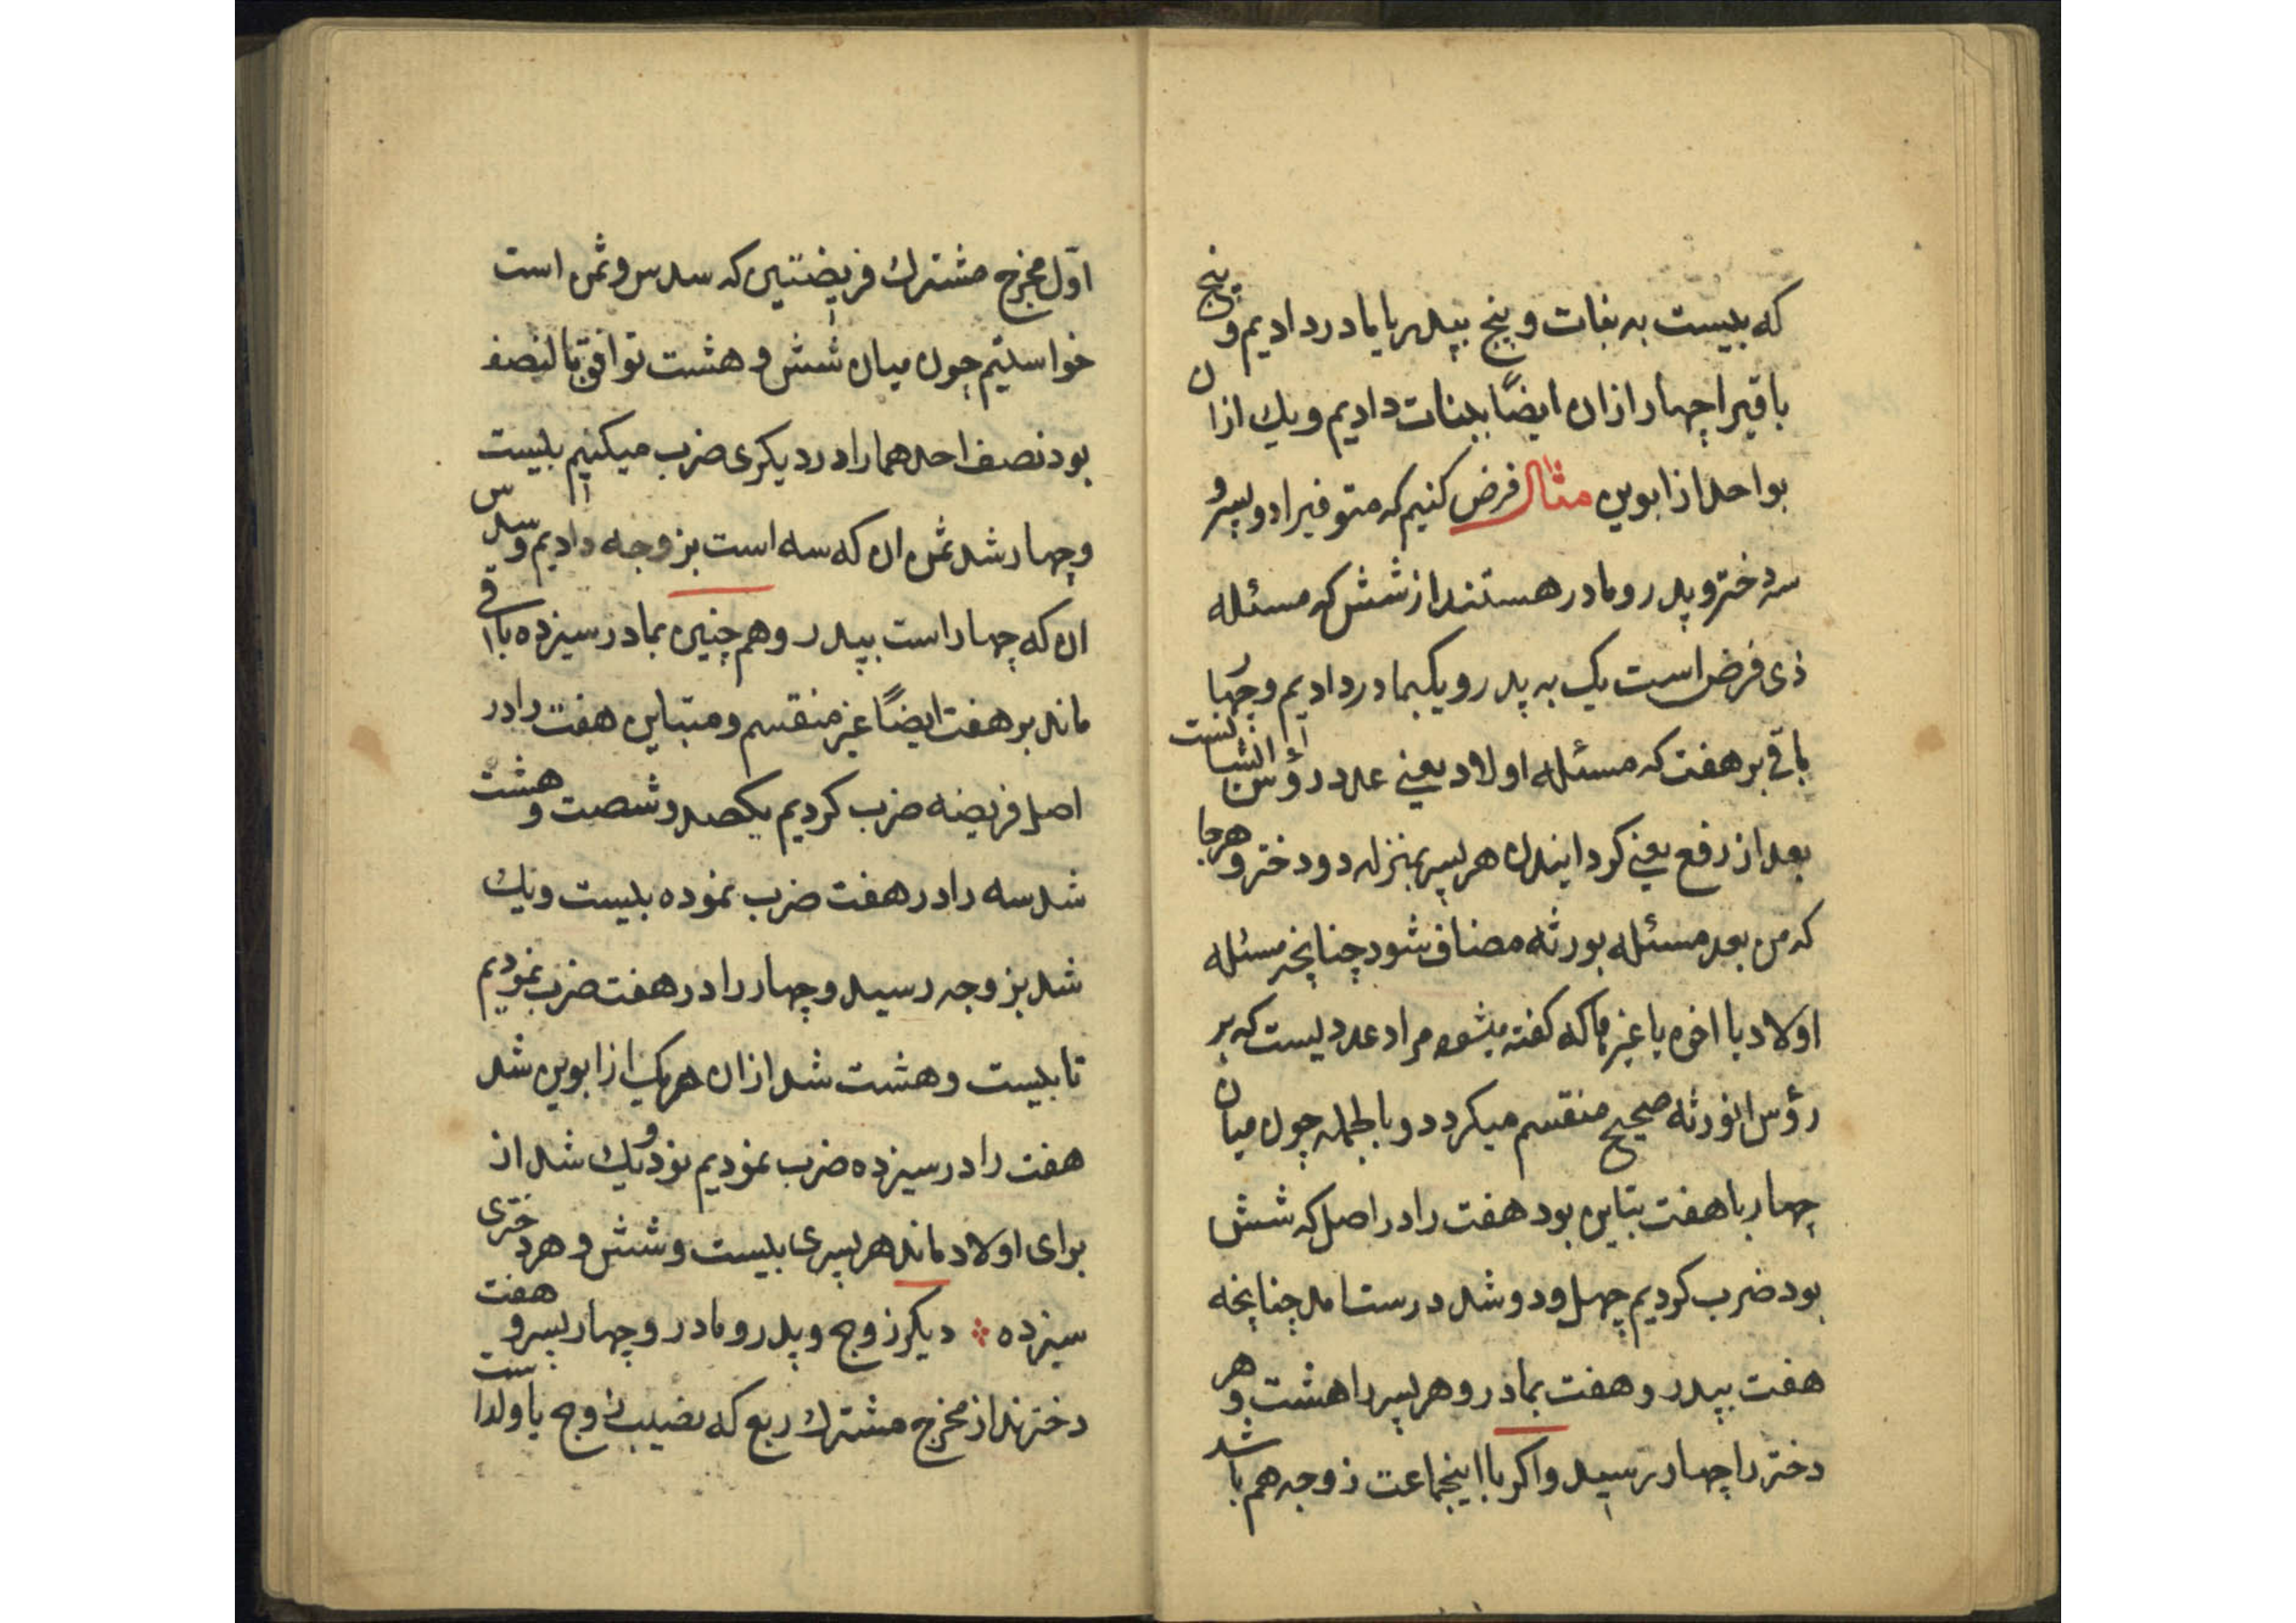 که بیست به بنات و پنج بپدر یا بمادر دادیم و پنج
باقیرا چهار ازان ایضًا ببنات دادیم و یك ازان
بواحد از ابوین مثال فرض کنیم که متوفیرا دو پسر و
سه دختر و پدر و مادر هستند از شش که مسئله
ذی فرض است یک به پدر و یک بمادر دادیم و چهار
باقی بر هفت که مسئله اولاد یعنی عدد رؤس انشانست
بعد از رفع یعنی کردانیدن هر پسر بمنزله دو دختر و هرجا
که من بعد مسئله بورثه مضاف شود چنانچه مسئله
اولاد یا اخوه یا غیرها که کفته میشود مراد عددیست که بر
رؤس انورثه صحیح منقسم میکردد و بالجمله چون میان
چهار با هفت تباین بود هفت را در اصل که شش
بود ضرب کردیم چهل و دو شد درست امد چنانچه
هفت بپدر و هفت بمادر و هر پسر را هشت و هر
دختر را چهار رسید و اکر با اینجماعت زوجه هم باشد
اوّل مخرج مشترك فریضتین که سدس و ثمن است
خواستیم چون میان شش و هشت توافق بالنصف
بود نصف احدهما را در دیکری ضرب میکنیم بیست
و چهار شد ثمن ان که سه است بزوجه دادیم و سدس
ان که چهار است بپدر و هم چنین بمادر سیزده باقی
ماند بر هفت ایضًا غیر منقسم و متباین هفت را در
اصل فریضه ضرب کردیم یکصد و شصت و هشت
شد سه را در هفت ضرب نموده بیست و یك
شد بزوجه رسید و چهار را در هفت ضرب نمودیم
تا بیست و هشت شد ازان هر یک از ابوین شد
هفت را در سیزده ضرب نمودیم نود و یك شد از
برای اولاد ماند هر پسری بیست و شش و هر دختری
سیزده ⁘ دیکر زوج و پدر و مادر و چهار پسر و هفت
دخترند از مخرج مشترك ربع که نصیب زوج با ولد است